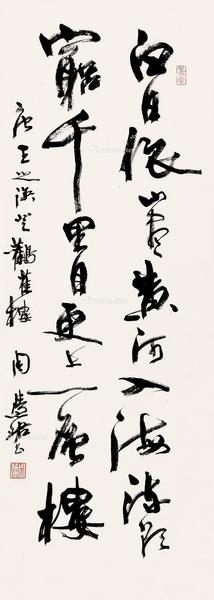 白日依山尽黄河入海流欲
窮千里目更上一层樓
唐王之渙登鸛雀樓 周慧珺書